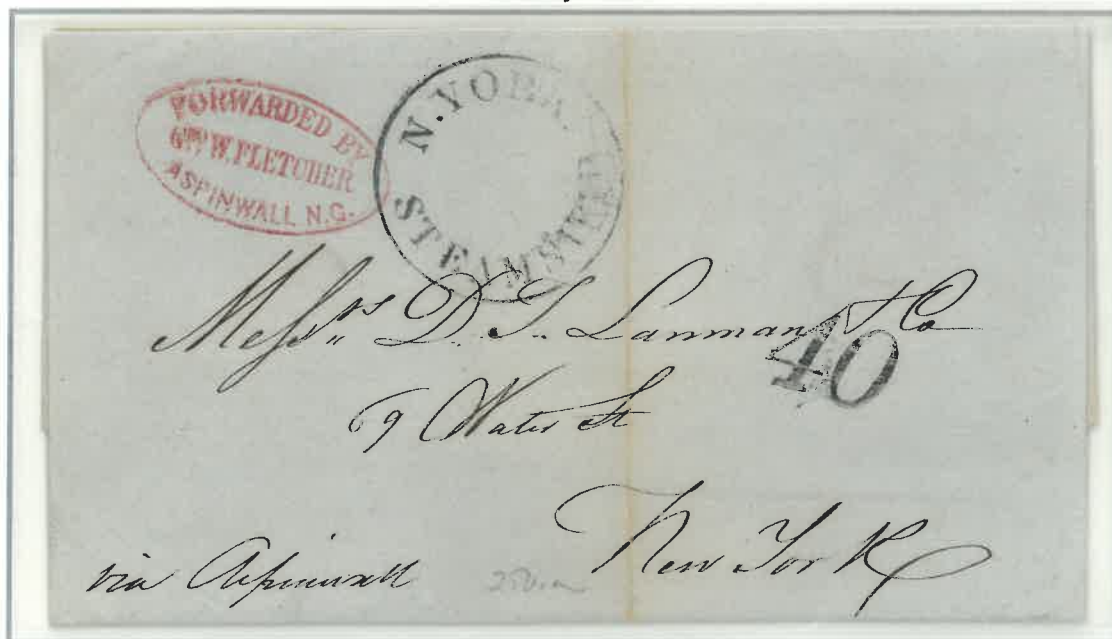 FORWARDED BY
Geo W. FLETCHER
ASPINWALL N.G.
N. YORK.
STEAMSHIP
Mess.rs D. T. Lanman & Co
40
69 Water St
New York
via Aspinwall